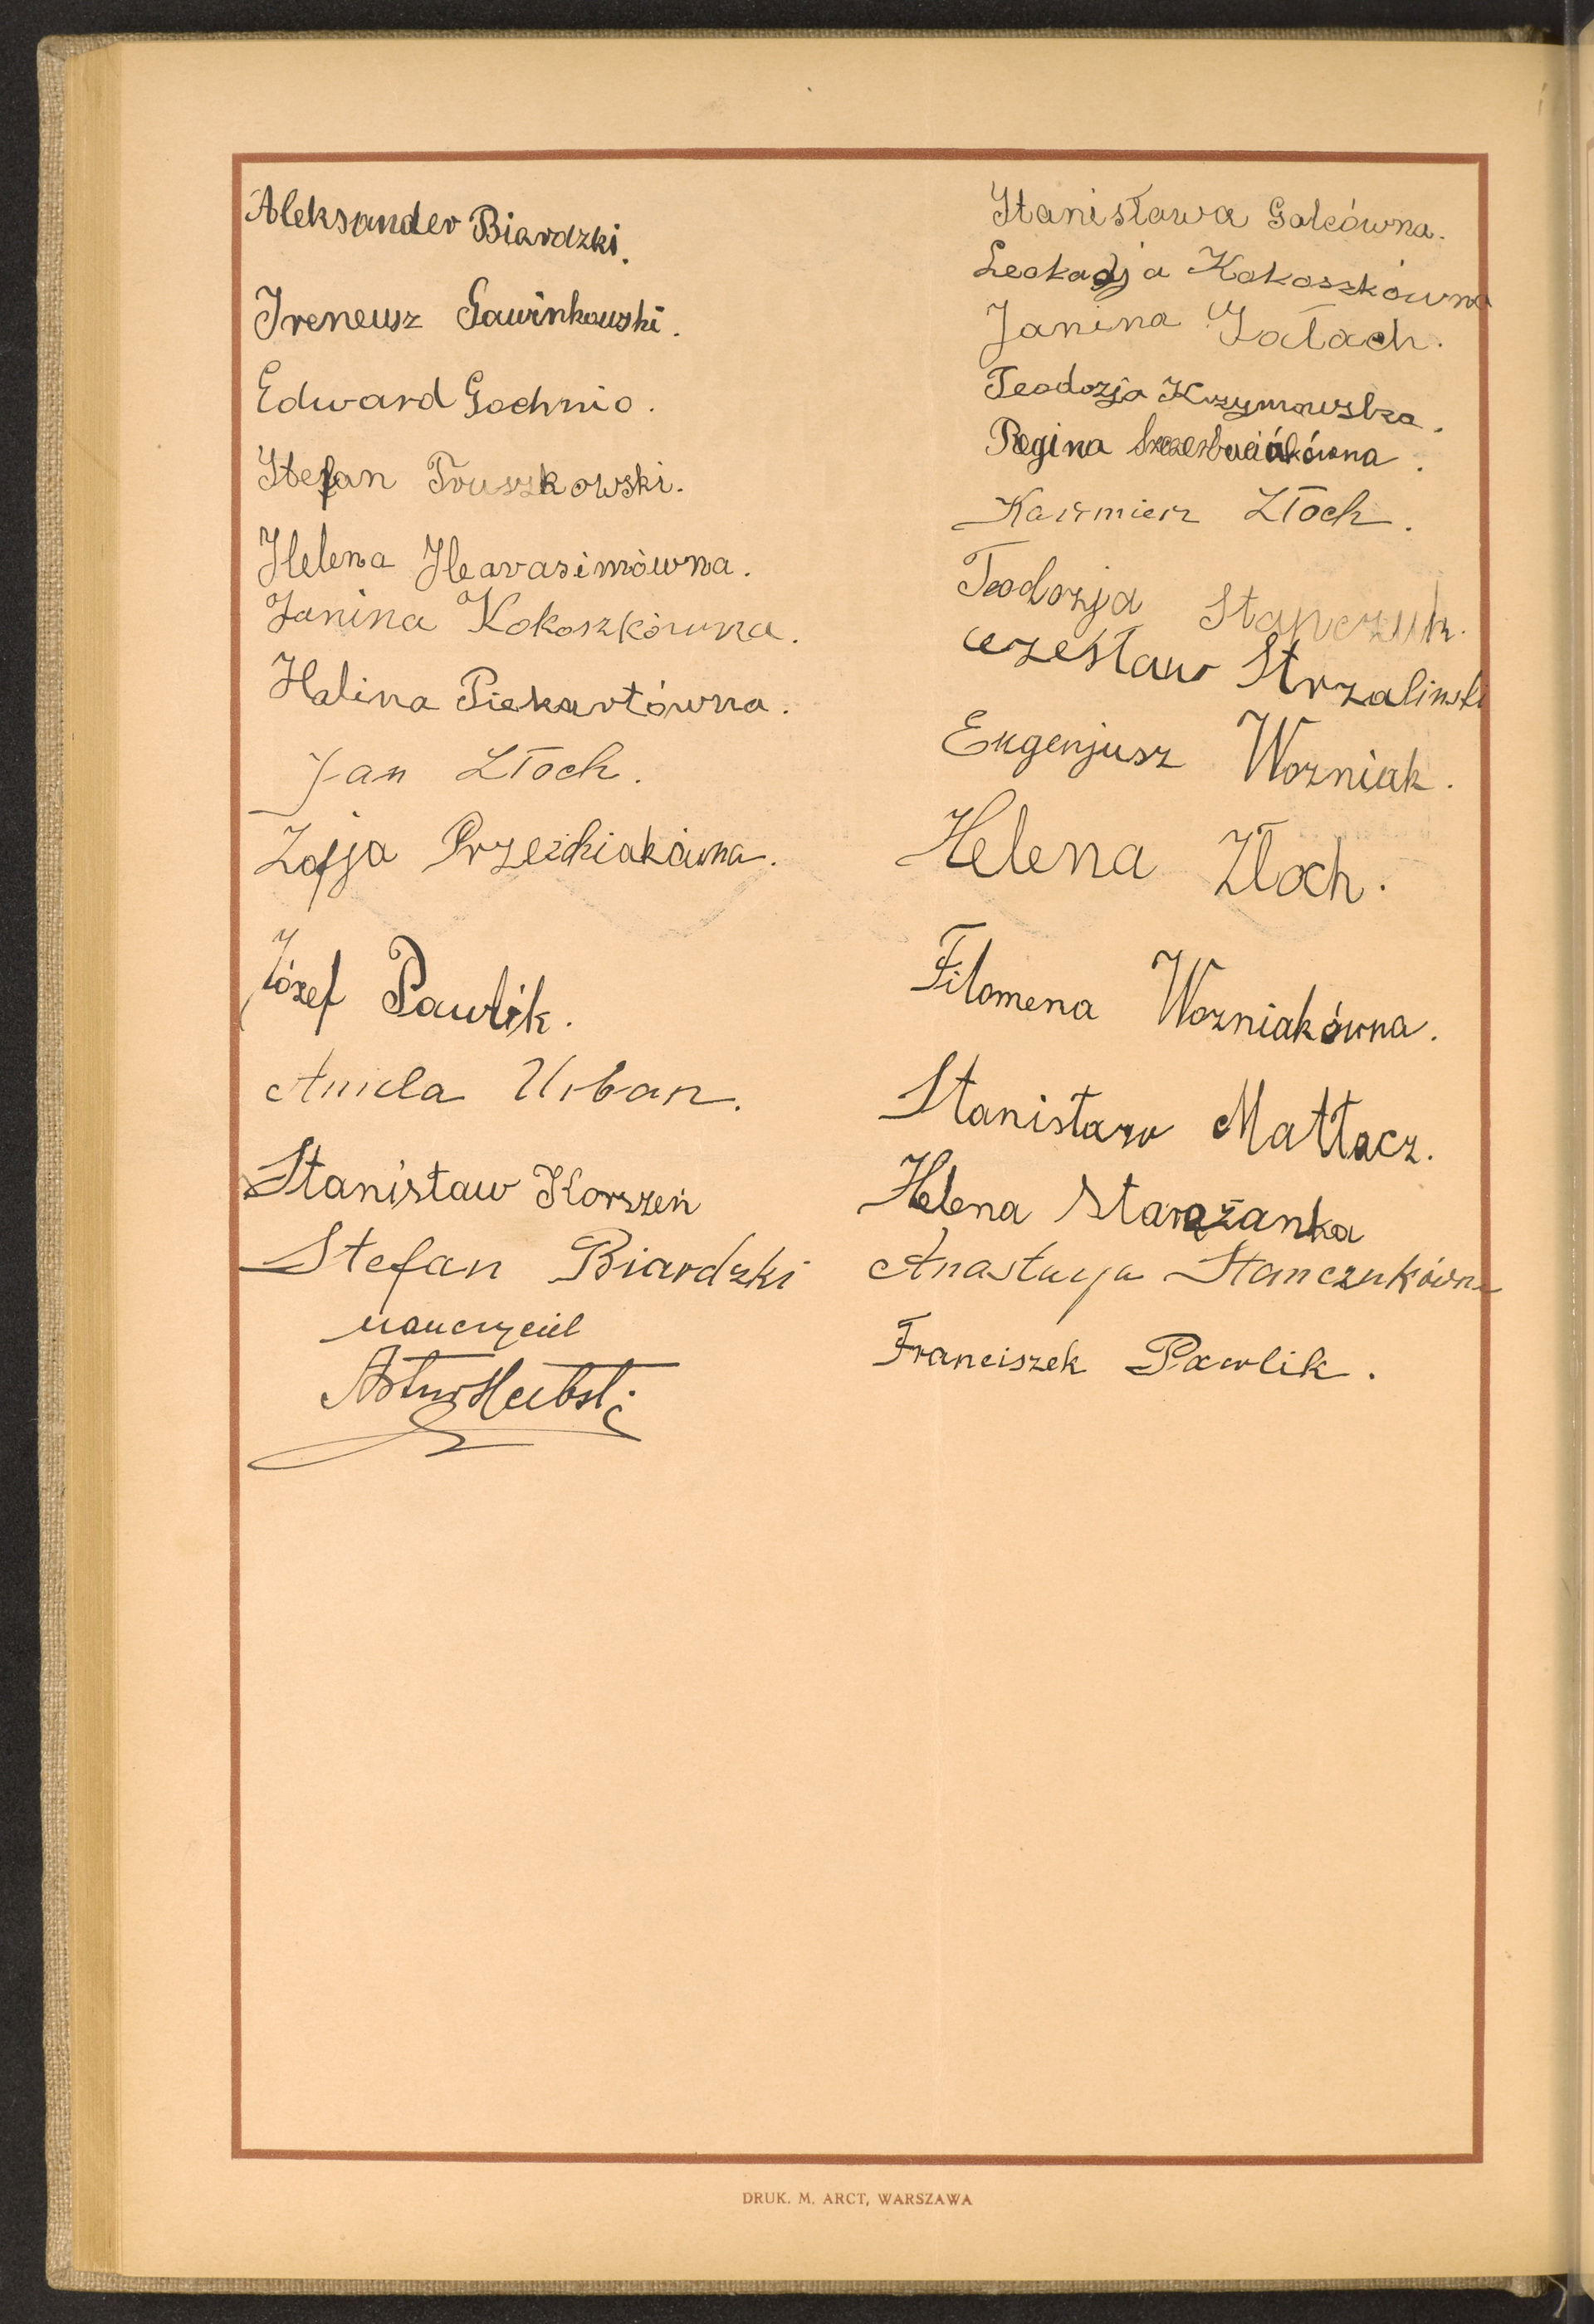 Aleksander Biardzki.
Ireneusz Gawinkowski.
Edward Gochnio.
Stefan Truszkowski.
Helena Harasimówna.
Janina Kokoszkówna.
Halina Piekartówna.
Jan Złoch.
Zofja
Józef Pawlik.
Aniela Urban.
Stanisław Korszeń
Stefan Biardzki
nauczyciel
Stanisława Golcówna.
Leokadja Kokoszkówna
Janina Gałach.
Teodozja Krzymowska.
Regina
Kazimierz Złoch.
Teodozja Stańczuk.
Czesław Strzaliński
Eugenjusz Wozniak.
Helena Złoch.
Filomena Wozniakówna.
Stanisław Matłacz.
Helena Starążanka
Anastazja Stanczukówna
Franciszek Pawlik.
DRUK. M. ARCT, WARSZAWA